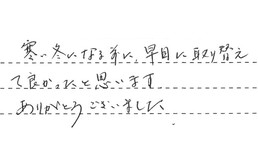 寒い冬になる前に、早目に取り替え
て良かったと思います
ありがとうございました